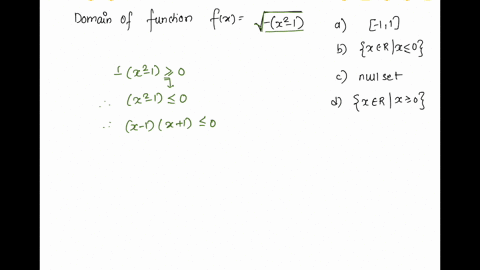 Domain of function f(x) = √-(x²-1)
a) [-1,1]
b) {x∈R | x≤0}
c) null set
d) {x∈R | x≥0}
-(x²-1) ≥ 0
∴ (x²-1) ≤ 0
∴ (x-1)(x+1) ≤ 0